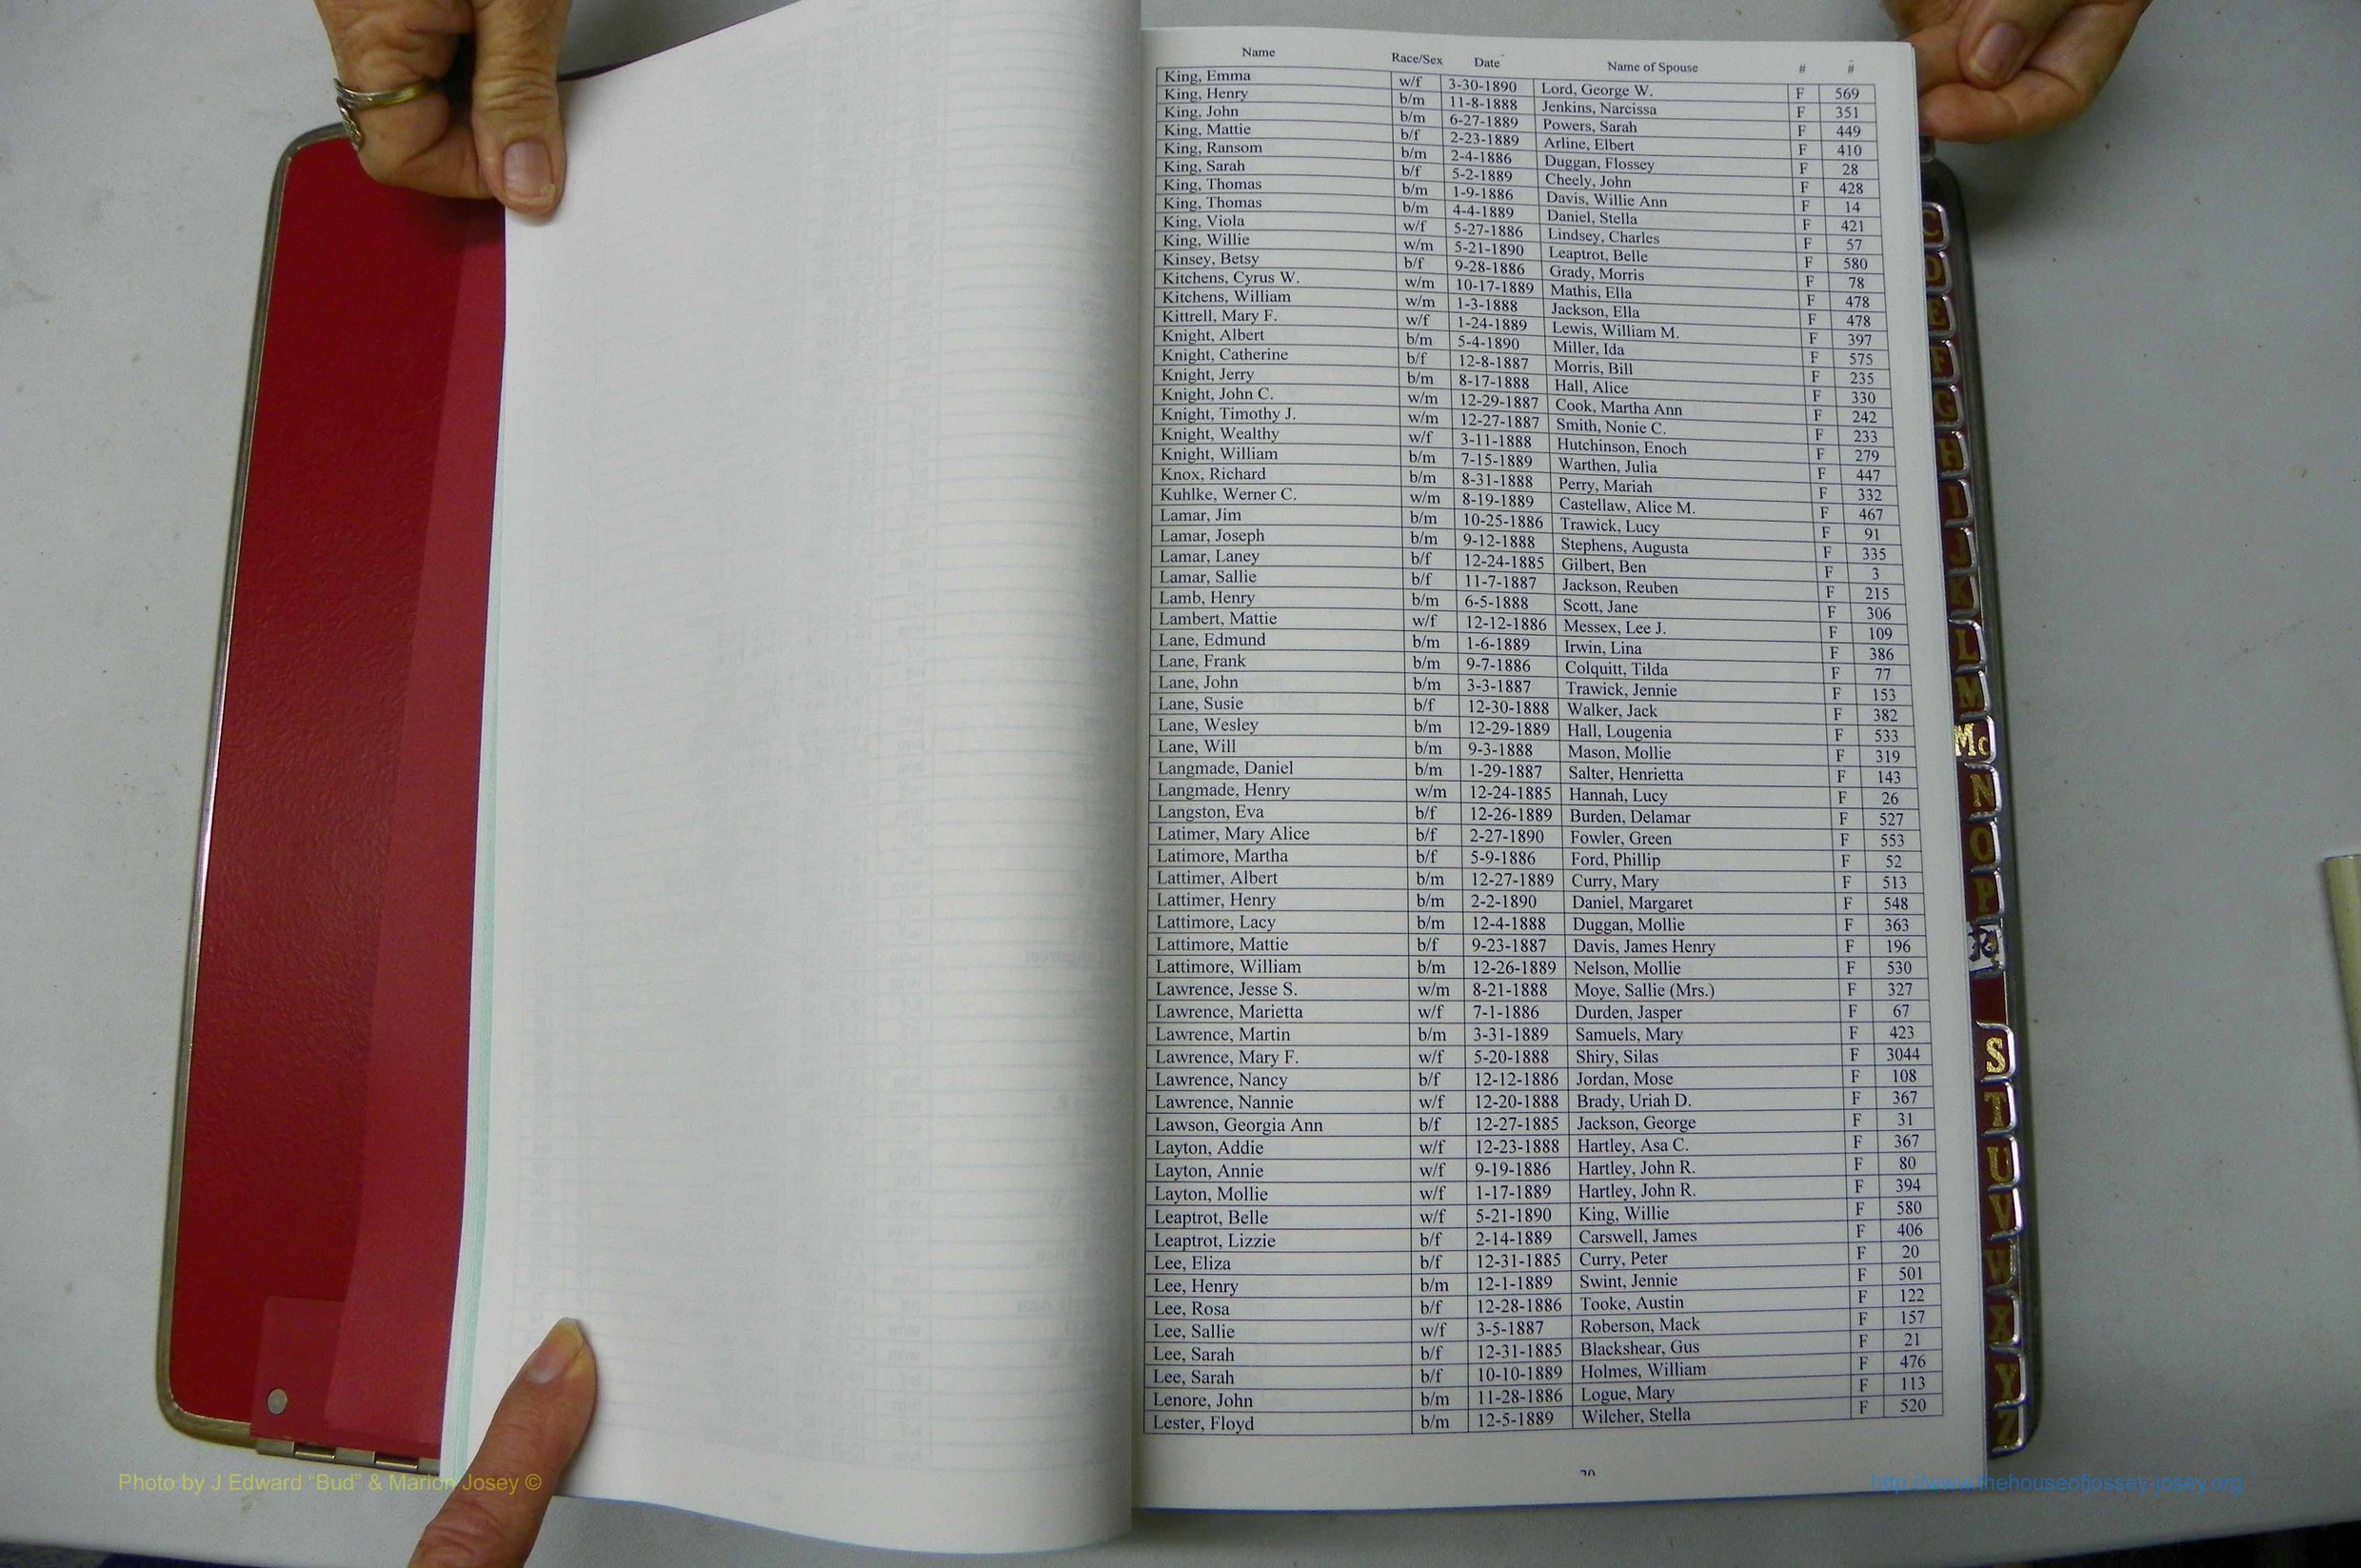 Name Race/Sex Date Name of Spouse # #
King, Emma w/f 3-30-1890 Lord, George W. F 569
King, Henry b/m 11-8-1888 Jenkins, Narcissa F 351
King, John b/m 6-27-1889 Powers, Sarah F 449
King, Mattie b/f 2-23-1889 Arline, Elbert F 410
King, Ransom b/m 2-4-1886 Duggan, Flossey F 28
King, Sarah b/f 5-2-1889 Cheely, John F 428
King, Thomas b/m 1-9-1886 Davis, Willie Ann F 14
King, Thomas b/m 4-4-1889 Daniel, Stella F 421
King, Viola w/f 5-27-1886 Lindsey, Charles F 57
King, Willie w/m 5-21-1890 Leaptrot, Belle F 580
Kinsey, Betsy b/f 9-28-1886 Grady, Morris F 78
Kitchens, Cyrus W. w/m 10-17-1889 Mathis, Ella F 478
Kitchens, William w/m 1-3-1888 Jackson, Ella F 478
Kittrell, Mary F. w/f 1-24-1889 Lewis, William M. F 397
Knight, Albert b/m 5-4-1890 Miller, Ida F 575
Knight, Catherine b/f 12-8-1887 Morris, Bill F 235
Knight, Jerry b/m 8-17-1888 Hall, Alice F 330
Knight, John C. w/m 12-29-1887 Cook, Martha Ann F 242
Knight, Timothy J. w/m 12-27-1887 Smith, Nonie C. F 233
Knight, Wealthy w/f 3-11-1888 Hutchinson, Enoch F 279
Knight, William b/m 7-15-1889 Warthen, Julia F 447
Knox, Richard b/m 8-31-1888 Perry, Mariah F 332
Kuhlke, Werner C. w/m 8-19-1889 Castellaw, Alice M. F 467
Lamar, Jim b/m 10-25-1886 Trawick, Lucy F 91
Lamar, Joseph b/m 9-12-1888 Stephens, Augusta F 335
Lamar, Laney b/f 12-24-1885 Gilbert, Ben F 3
Lamar, Sallie b/f 11-7-1887 Jackson, Reuben F 215
Lamb, Henry b/m 6-5-1888 Scott, Jane F 306
Lambert, Mattie w/f 12-12-1886 Messex, Lee J. F 109
Lane, Edmund b/m 1-6-1889 Irwin, Lina F 386
Lane, Frank b/m 9-7-1886 Colquitt, Tilda F 77
Lane, John b/m 3-3-1887 Trawick, Jennie F 153
Lane, Susie b/f 12-30-1888 Walker, Jack F 382
Lane, Wesley b/m 12-29-1889 Hall, Lougenia F 533
Lane, Will b/m 9-3-1888 Mason, Mollie F 319
Langmade, Daniel b/m 1-29-1887 Salter, Henrietta F 143
Langmade, Henry w/m 12-24-1885 Hannah, Lucy F 26
Langston, Eva b/f 12-26-1889 Burden, Delamar F 527
Latimer, Mary Alice b/f 2-27-1890 Fowler, Green F 553
Latimore, Martha b/f 5-9-1886 Ford, Phillip F 52
Lattimer, Albert b/m 12-27-1889 Curry, Mary F 513
Lattimer, Henry b/m 2-2-1890 Daniel, Margaret F 548
Lattimore, Lacy b/m 12-4-1888 Duggan, Mollie F 363
Lattimore, Mattie b/f 9-23-1887 Davis, James Henry F 196
Lattimore, William b/m 12-26-1889 Nelson, Mollie F 530
Lawrence, Jesse S. w/m 8-21-1888 Moye, Sallie (Mrs.) F 327
Lawrence, Marietta w/f 7-1-1886 Durden, Jasper F 67
Lawrence, Martin b/m 3-31-1889 Samuels, Mary F 423
Lawrence, Mary F. w/f 5-20-1888 Shiry, Silas F 3044
Lawrence, Nancy b/f 12-12-1886 Jordan, Mose F 108
Lawrence, Nannie w/f 12-20-1888 Brady, Uriah D. F 367
Lawson, Georgia Ann b/f 12-27-1885 Jackson, George F 31
Layton, Addie w/f 12-23-1888 Hartley, Asa C. F 367
Layton, Annie w/f 9-19-1886 Hartley, John R. F 80
Layton, Mollie w/f 1-17-1889 Hartley, John R. F 394
Leaptrot, Belle w/f 5-21-1890 King, Willie F 580
Leaptrot, Lizzie b/f 2-14-1889 Carswell, James F 406
Lee, Eliza b/f 12-31-1885 Curry, Peter F 20
Lee, Henry b/m 12-1-1889 Swint, Jennie F 501
Lee, Rosa b/f 12-28-1886 Tooke, Austin F 122
Lee, Sallie w/f 3-5-1887 Roberson, Mack F 157
Lee, Sarah b/f 12-31-1885 Blackshear, Gus F 21
Lee, Sarah b/f 10-10-1889 Holmes, William F 476
Lenore, John b/m 11-28-1886 Logue, Mary F 113
Lester, Floyd b/m 12-5-1889 Wilcher, Stella F 520
C
D
E
F
G
H
I
J
K
L
M
Mc
N
O
P
S
T
U
V
W
X
Y
Z
Photo by J Edward “Bud” & Marion Josey ©
http://www.thehouseofjossey-josey.org